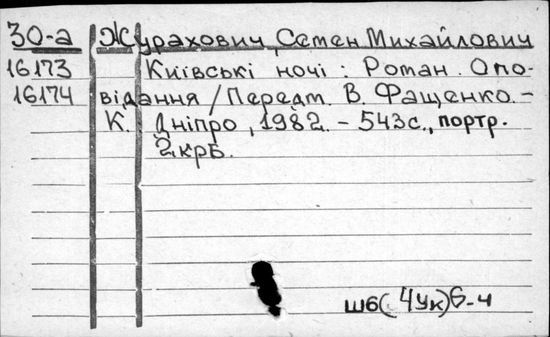 30-а Журахович, Семен Михайлович
16173 Київські ночі : Роман. Опо-
16174 відання / Передм. В. Фащенко. -
К. Дніпро, 1982. - 543с., портр.
2крб.
ш6(4Ук)6-4